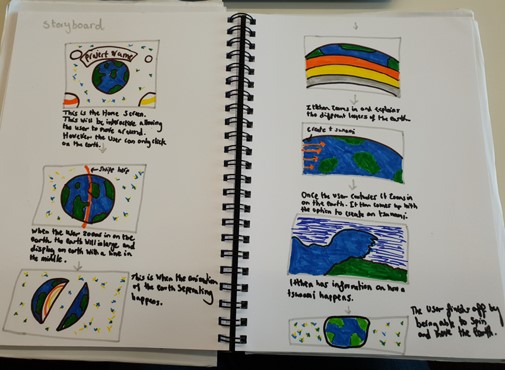 storyboard
Project Name
This is the Home Screen.
This will be interactive allowing
the user to move around.
However the user can only click
on the earth.
Swipe here
When the user zooms in on the
earth the earth will enlarge and
display an earth with a line in
the middle.
This is when the animation
of the Earth Seperating
happens.
It then zooms in and explores
the different layers of the earth.
Create tsunami
Once the user continues it zooms in
on the earth. It then comes up with
the option to create an tsunami.
It then has information on how a
tsunami happens.
The user finishes off by
being able to spin
and move the Earth.